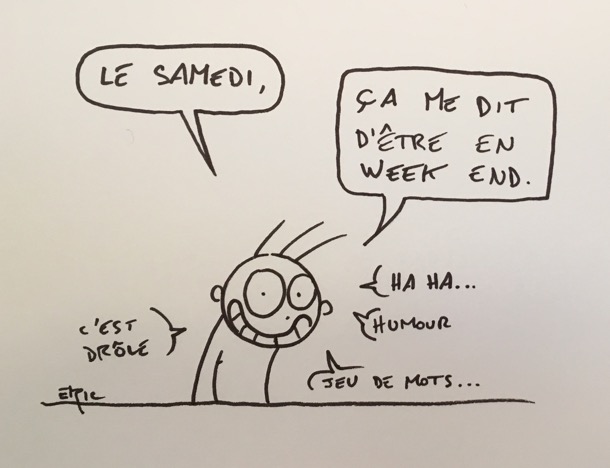 LE SAMEDI,
ÇA ME DIT
D'ÊTRE EN
WEEK END.
HA HA...
HUMOUR
C'EST
DRÔLE
JEU DE MOTS...
ERIC